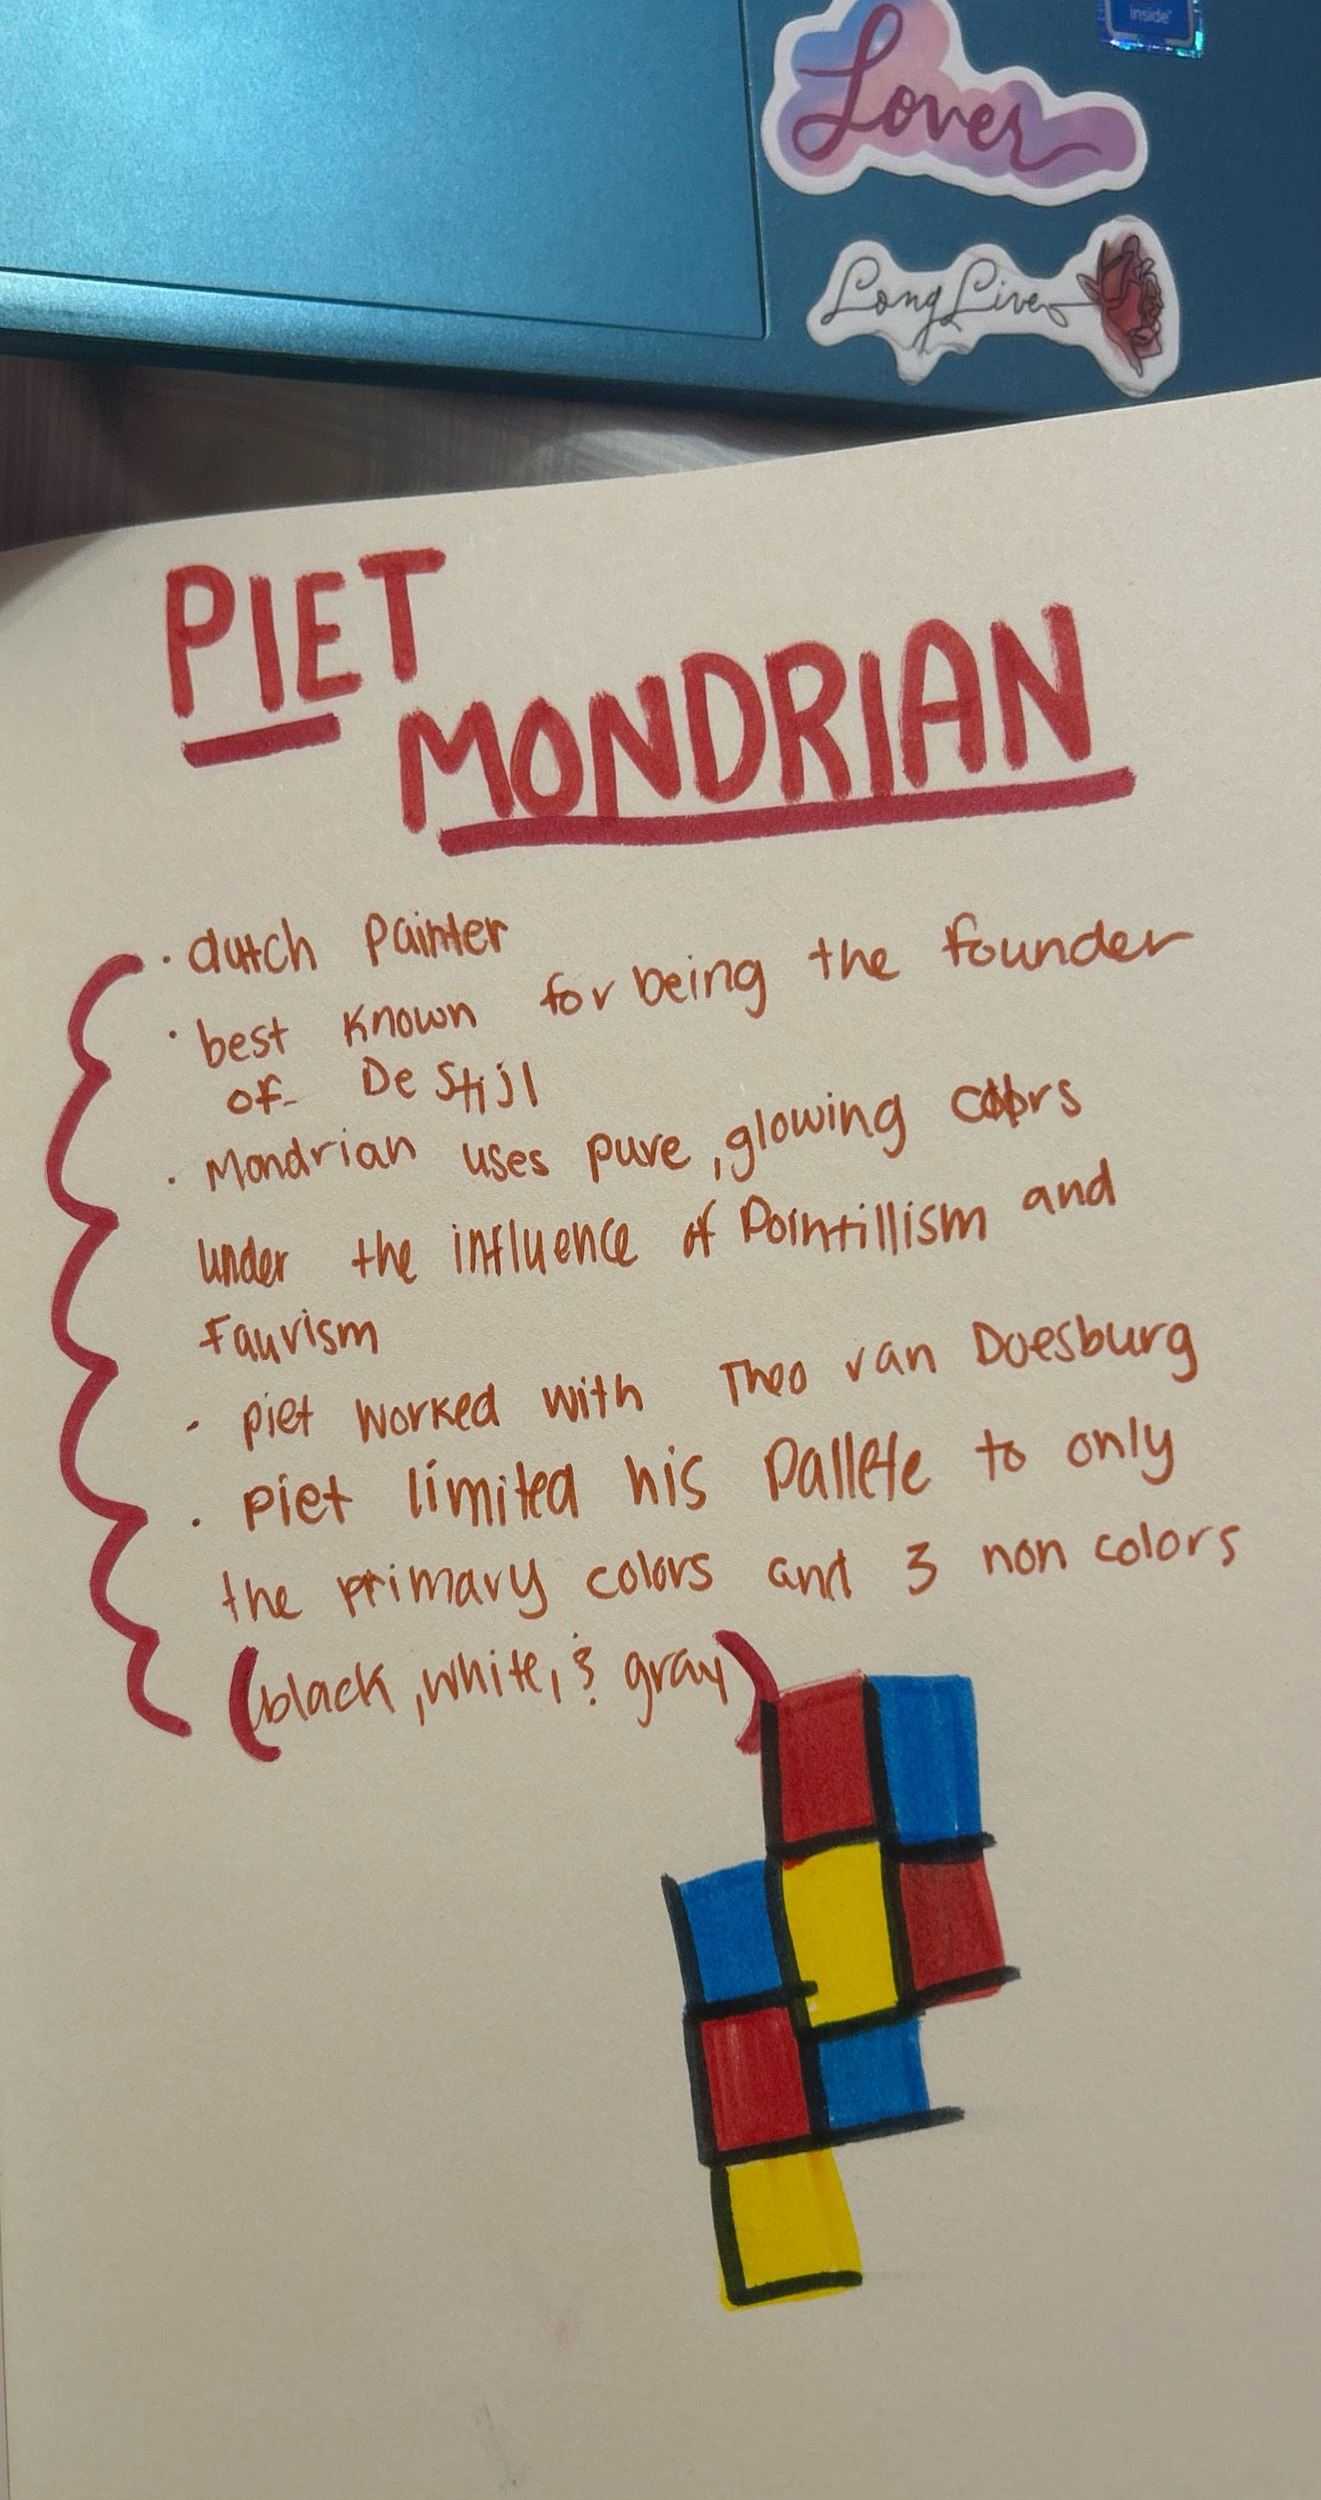 inside
Lover
Long Live
PIET
MONDRIAN
· dutch painter
· best known for being the founder
of De Stijl
· Mondrian uses pure, glowing colors
under the influence of Pointillism and
Fauvism
· piet worked with Theo van Doesburg
· piet limited his Pallete to only
the primary colors and 3 non colors
(black, white, & gray)